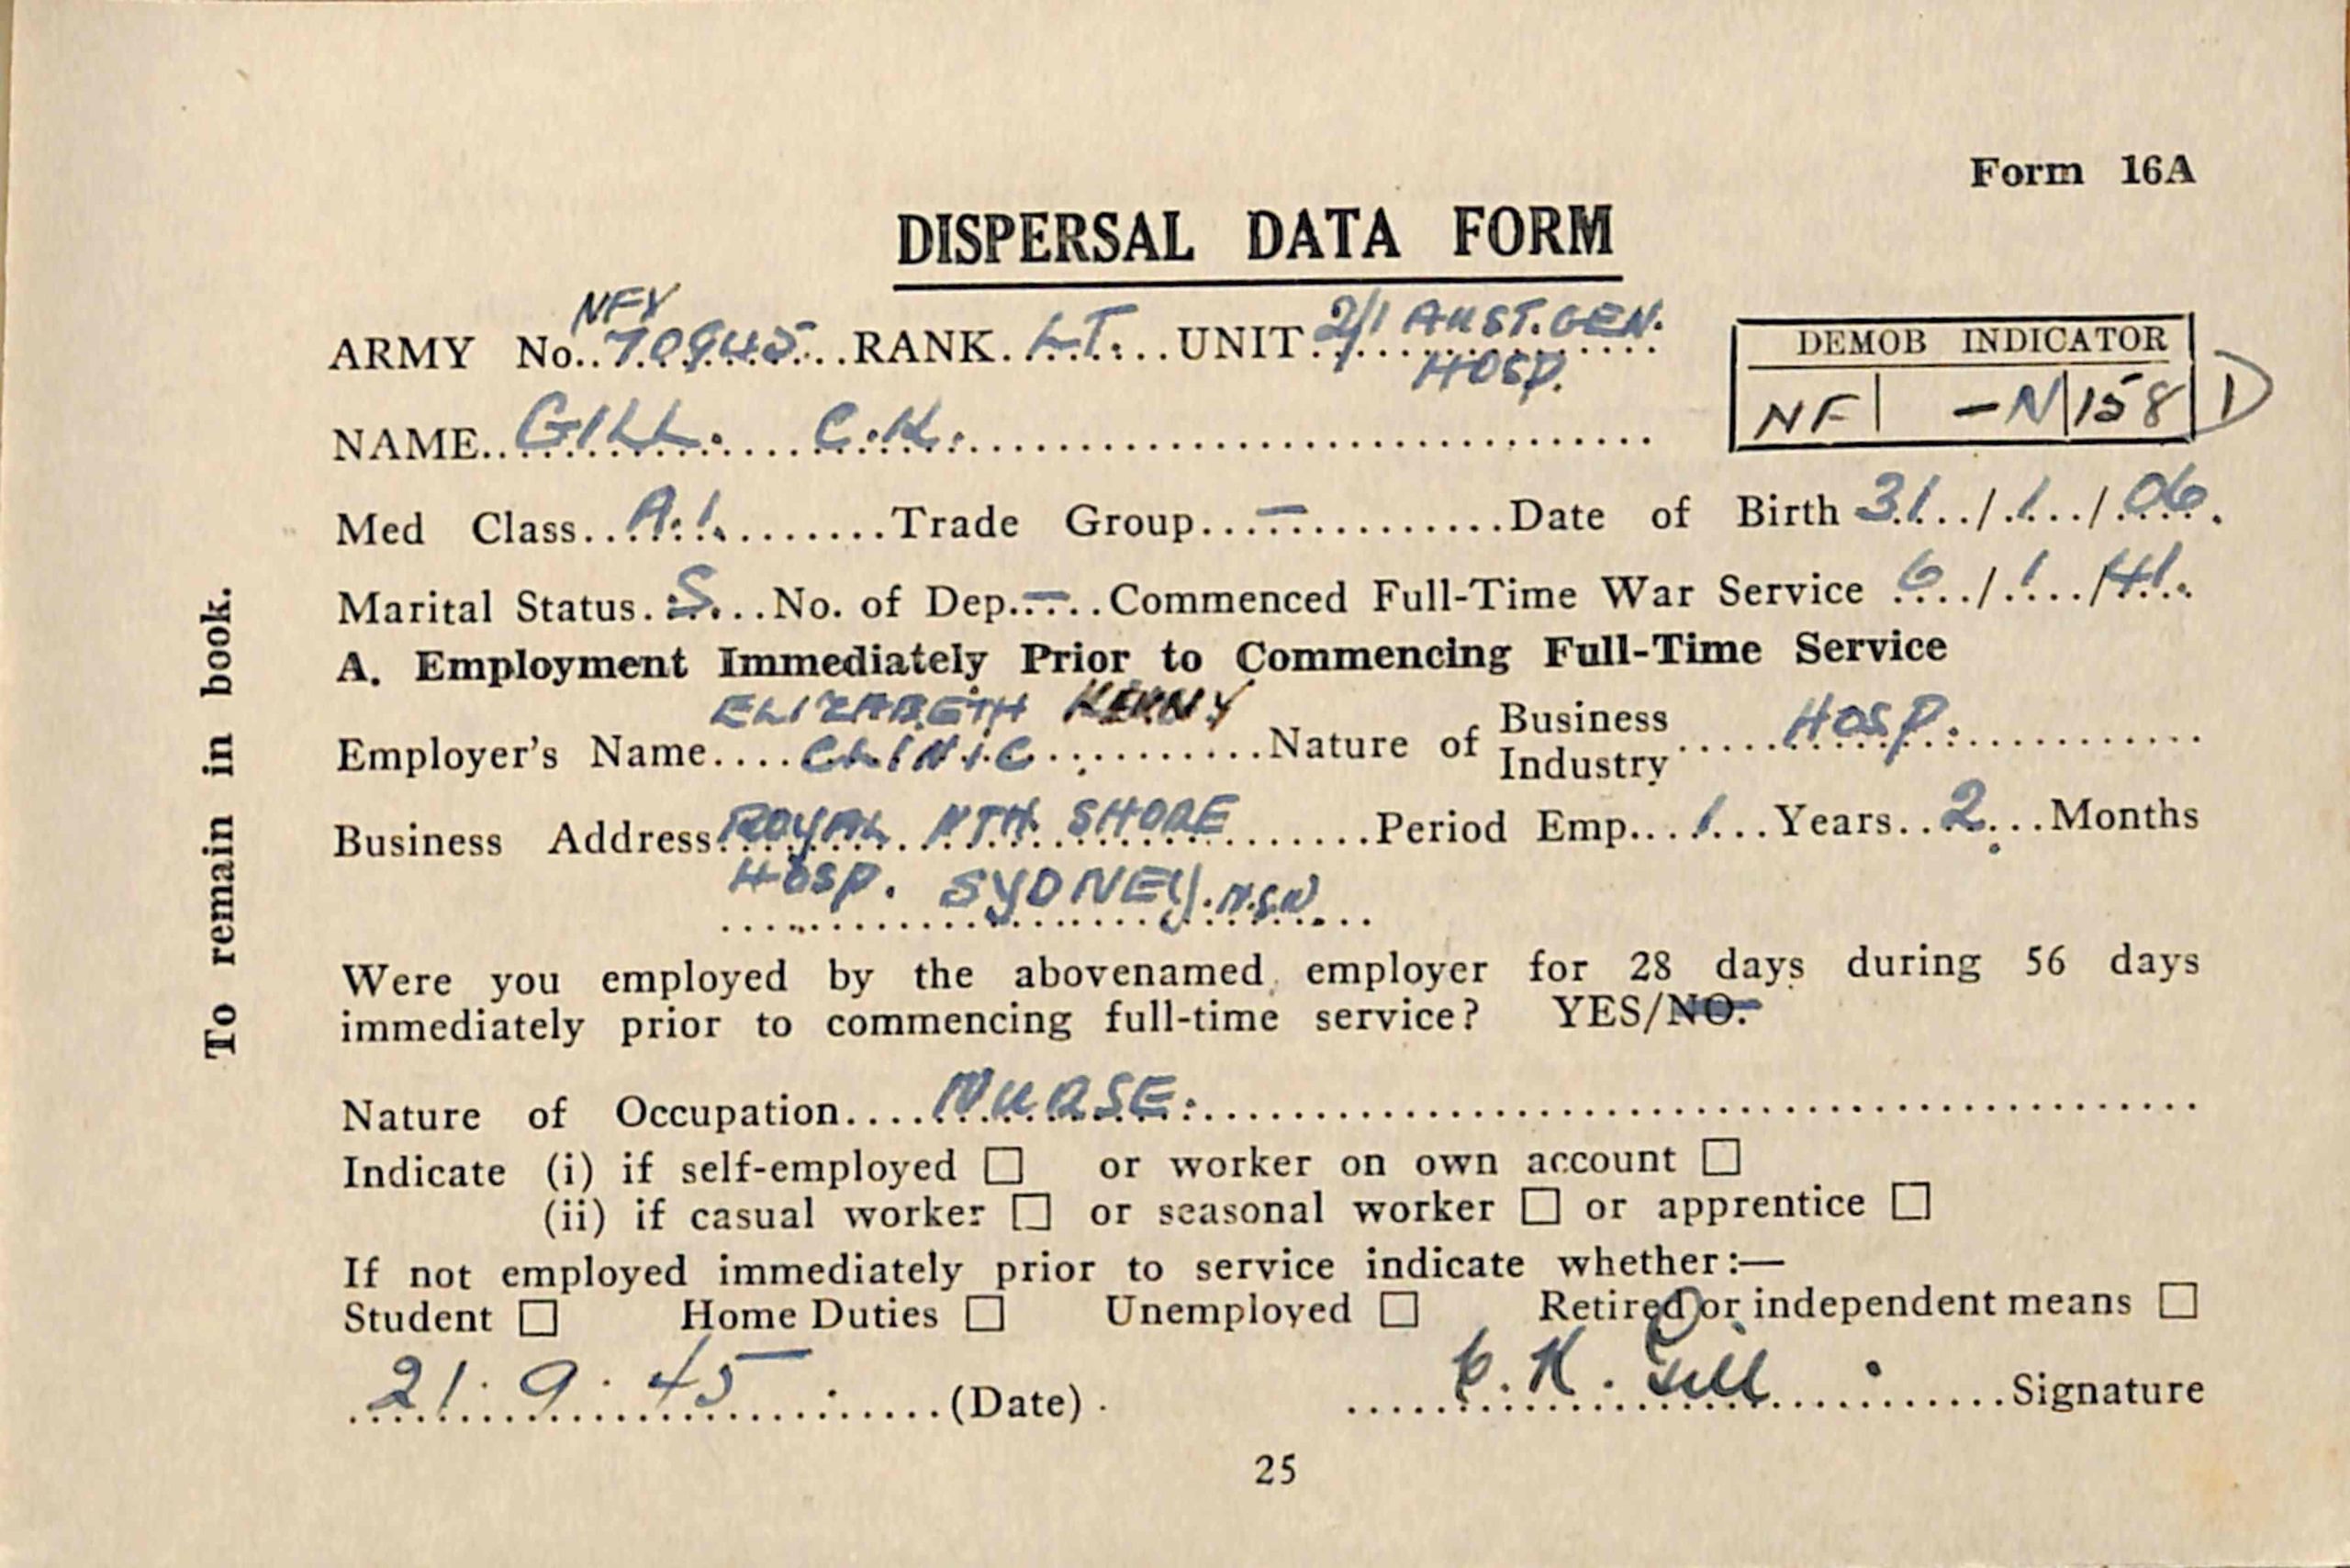 Form 16A
DISPERSAL DATA FORM
NFX
ARMY No. 70945 RANK. LT. UNIT 2/1 AUST. GEN.
HOSP.
DEMOB INDICATOR
NF -N 158 D
NAME GILL. C.K.
Med Class A.1. Trade Group — Date of Birth 31/1/06.
Marital Status. S. No. of Dep. — Commenced Full-Time War Service 6/1/41.
A. Employment Immediately Prior to Commencing Full-Time Service
ELIZABETH KENNY
Employer's Name CLINIC Nature of Business Industry HOSP.
Business Address ROYAL NTH SHORE Period Emp. 1 Years 2 Months
HOSP. SYDNEY. N.S.W
Were you employed by the abovenamed employer for 28 days during 56 days
immediately prior to commencing full-time service? YES/NO.
Nature of Occupation NURSE.
Indicate (i) if self-employed □ or worker on own account □
(ii) if casual worker □ or seasonal worker □ or apprentice □
If not employed immediately prior to service indicate whether:—
Student □ Home Duties □ Unemployed □ Retired or independent means □
21. 9. 45 (Date) C. K. Gill Signature
25
To remain in book.